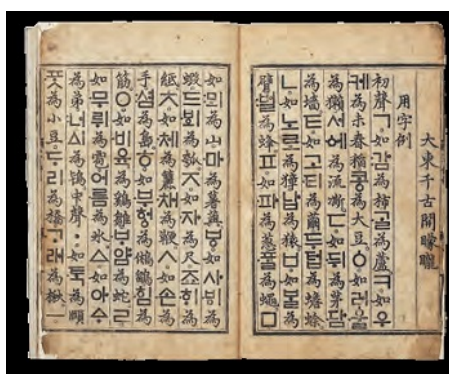 大東千古開矇矓
用字例
初聲ㄱ如감為柿ᄀᆞᆯ為蘆ㅋ如우
케為未舂稻콩為大豆ㆁ如러울
為獺서에為流凘ㄷ如뒤為茅담
為墻ㅌ如고티為繭두텁為蟾蜍
ㄴ如노로為獐납為猿ㅂ如ᄇᆞᆯ為
臂벌為蜂ㅍ如파為葱ᄑᆞᆯ為蠅ㅁ
如뫼為山마為薯藇ㅸ如사ᄫᅵ為
蝦드ᄫᅴ為瓠ㅈ如자為尺죠ᄒᆡ為
紙ㅊ如체為籭채為鞭ㅅ如손為
手셤為島ㅎ如부헝為鵂鶹힘為
筋ㅇ如비육為鷄雛ᄇᆞ얌為蛇ㄹ
如무뤼為雹어름為氷ㅿ如아ᅀᆞ
為弟너ᅀᅵ為鴇中聲ㆍ如ᄐᆞᆨ為頤
ᄑᆞᆺ為小豆ᄃᆞ리為橋ᄀᆞ래為楸ㅡ